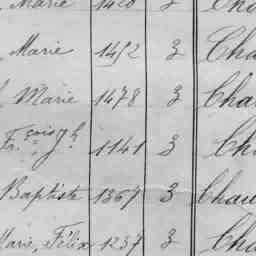 Marie 1420 3
Marie 1452 3 Cha
Marie 1478 3 Cha
Fr.çois Jh 1141 3 Ch
Baptiste 1367 3 Chau
Marie, Félix 1237 3 Cha